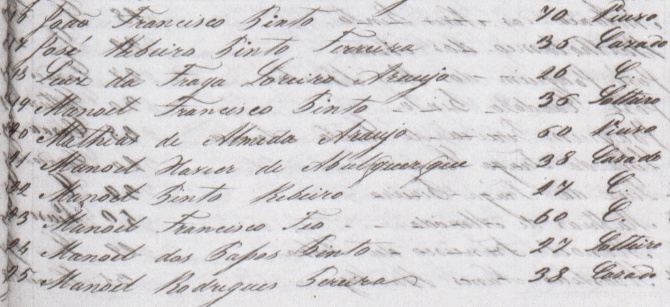 16 João Francisco Pinto 70 Viuvo
17 José Ribeiro Pinto Ferreira 35 Casado
18 Luiz da Fraga Loreiro Araujo 26 C.
19 Manoel Francisco Pinto 36 Solteiro
20 Mathias de Almeda Araujo 60 Viuvo
21 Manoel Xavier de Abulquerque 38 Casado
22 Manoel Pinto Ribeiro 27 C.
23 Manoel Francisco Tio 60 C.
24 Manoel dos Passos Pinto 27 Solteiro
25 Manoel Rodrigues Pereira 38 Casado